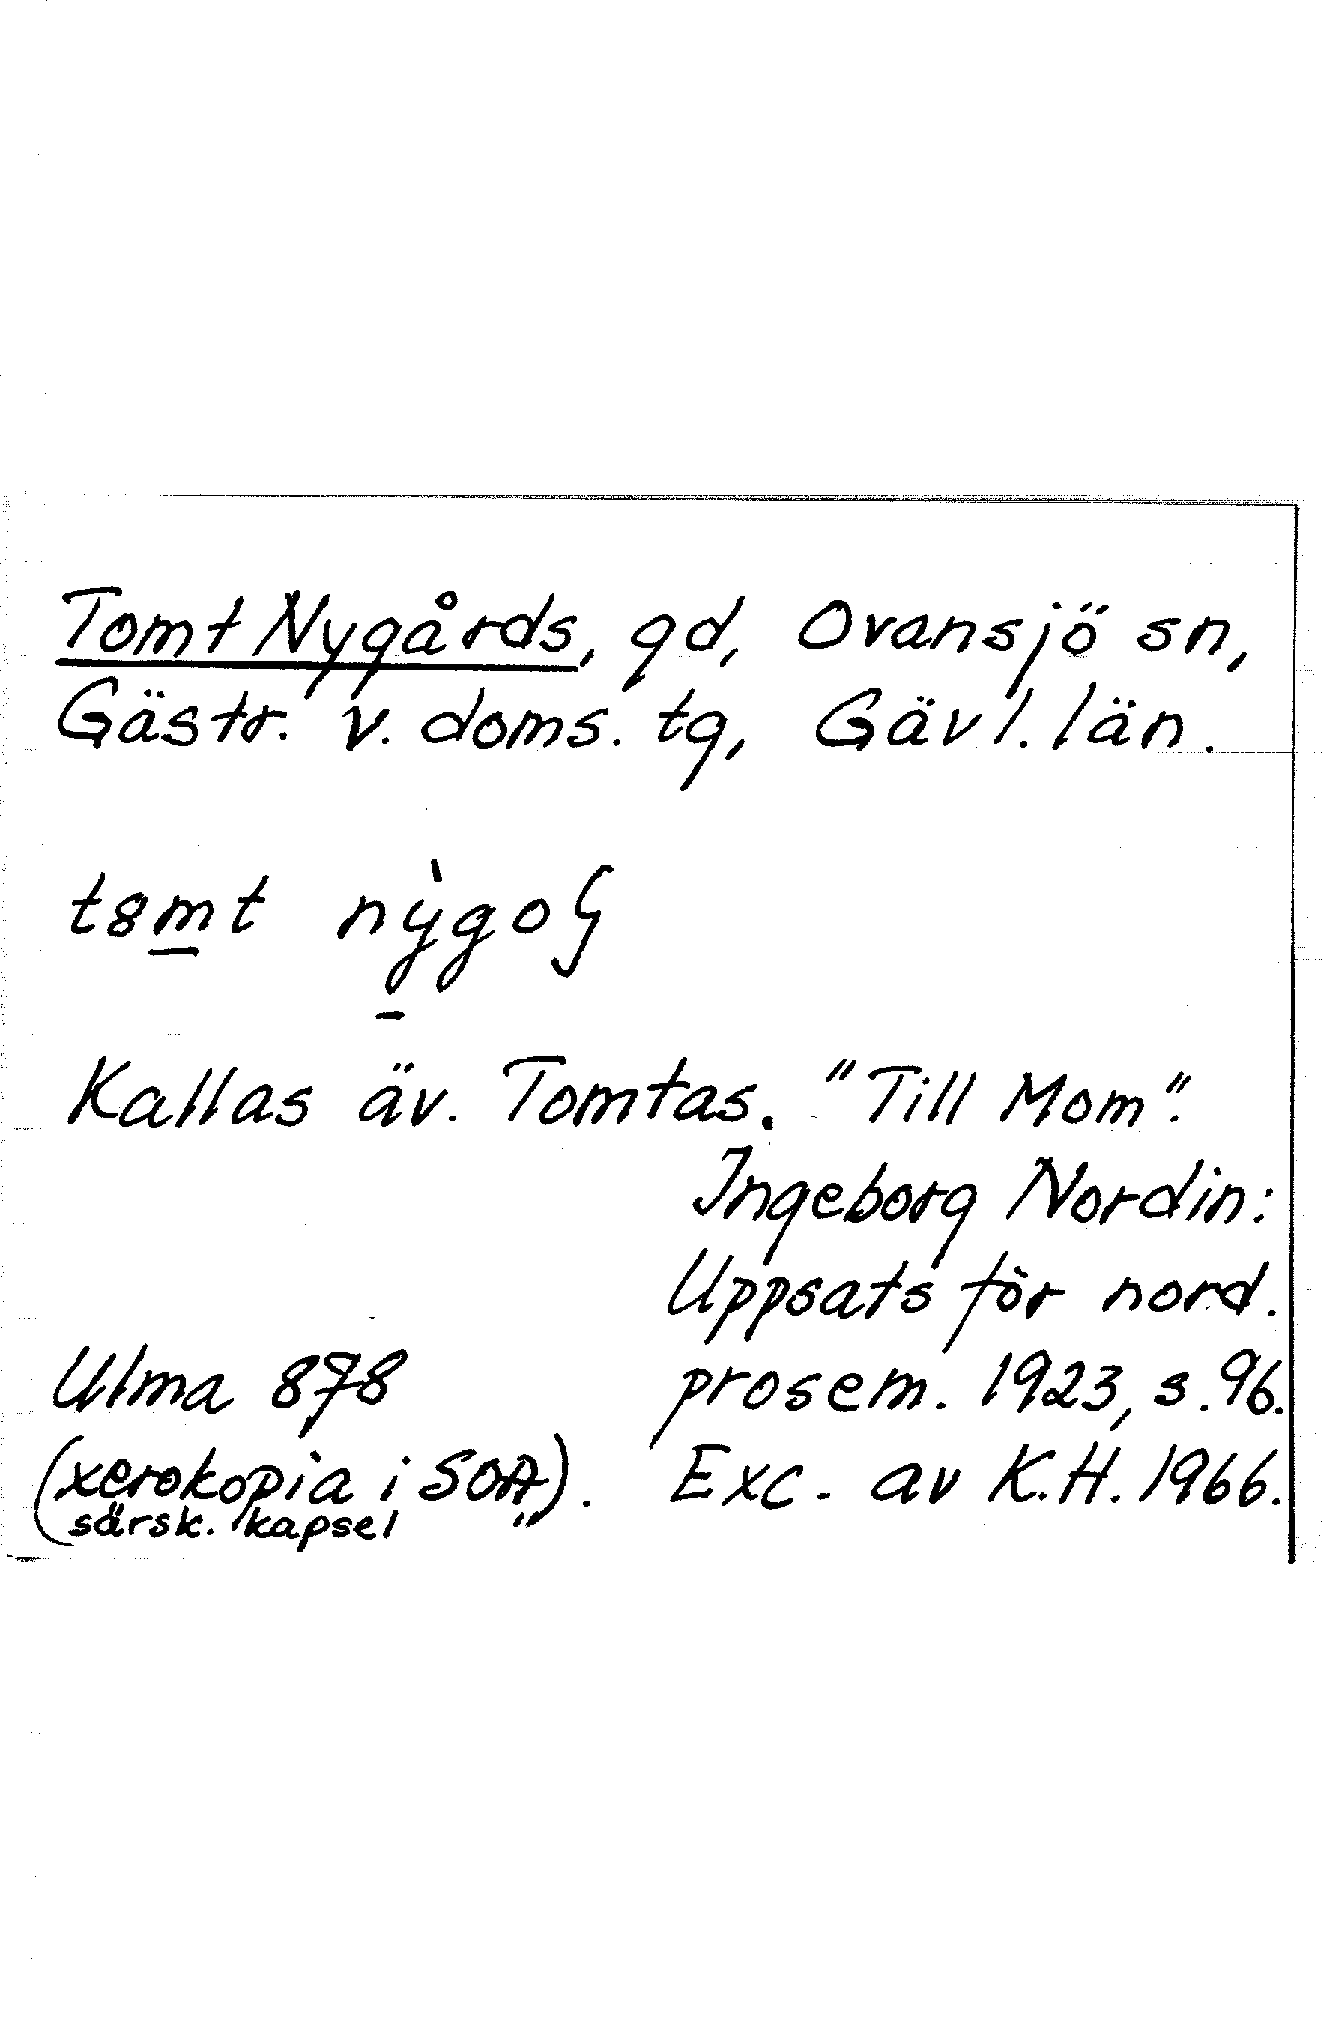 Tomt Nygårds, gd, Ovansjö sn,
Gästr. v. doms. tg, Gävl. län.
t8m̲t nỳ̲goʃ
Kallas äv. Tomtas. "Till Mom".
Ingeborg Nordin:
Uppsats för nord.
Ulma 878 prosem. 1923, s. 96.
(xerokopia i SOÄ). Exc. av K.H. 1966.
särsk. kapsel